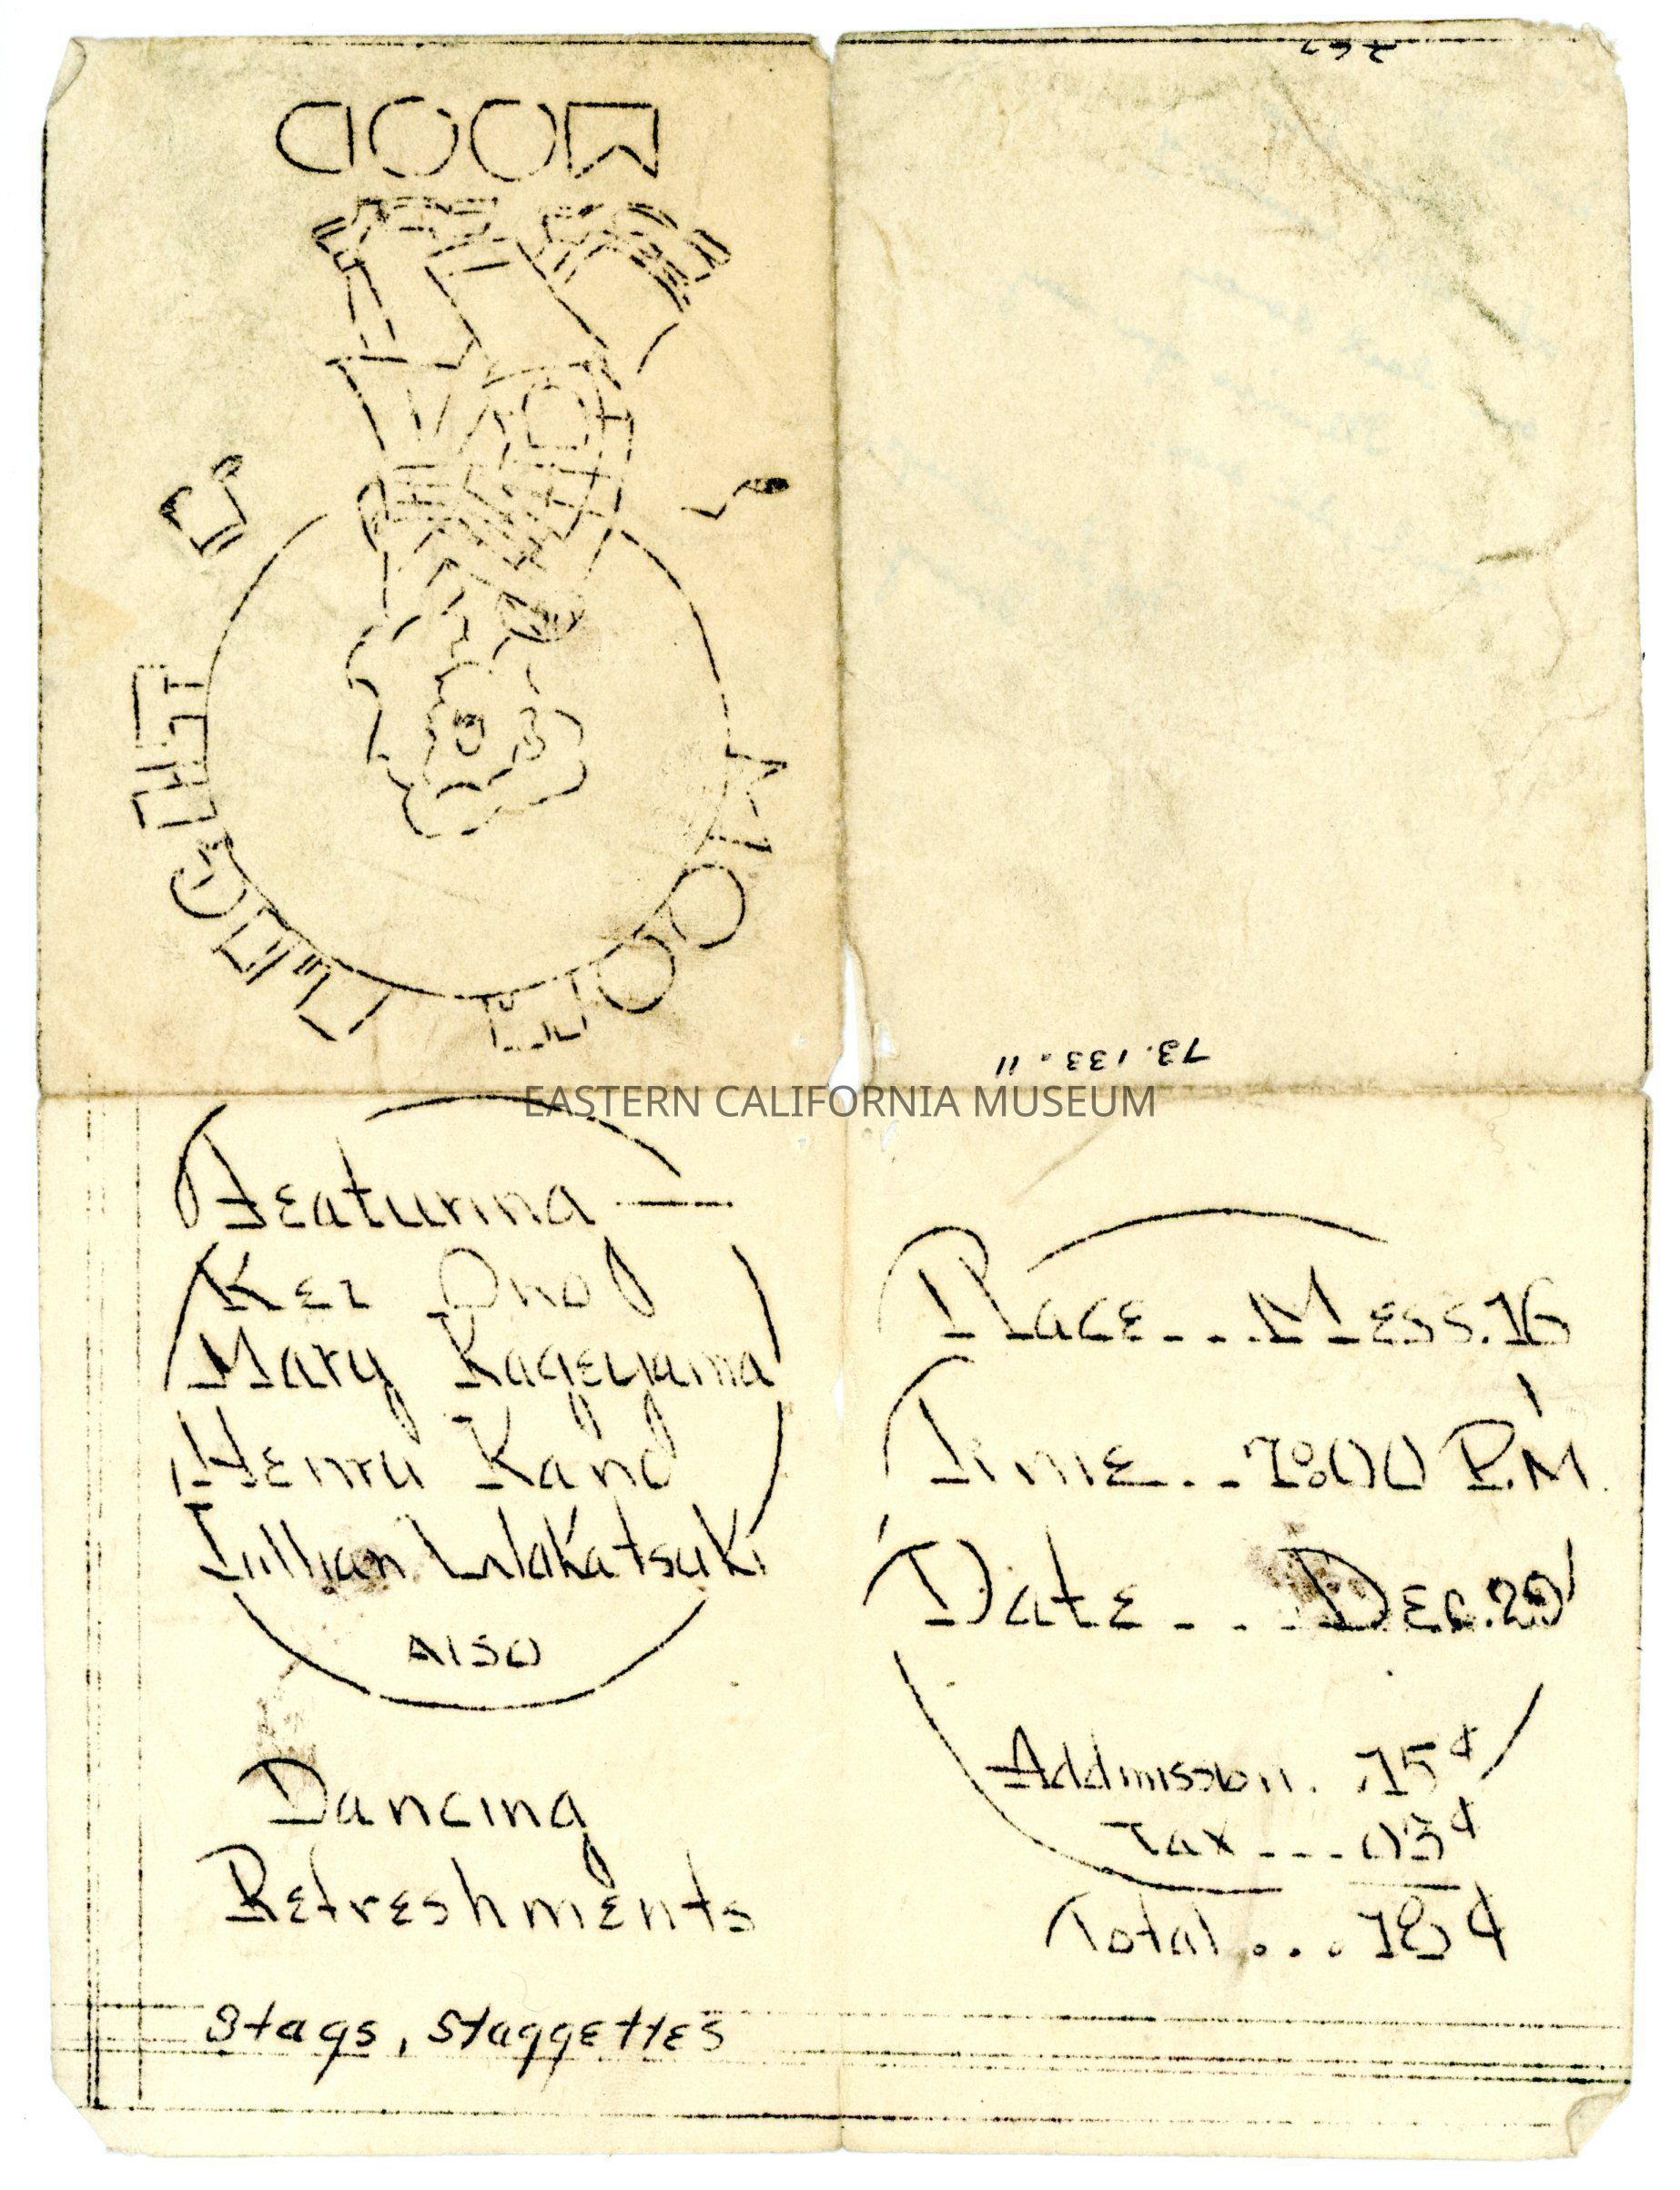 MOONLIGHT
MOOD
73.133.11
EASTERN CALIFORNIA MUSEUM
Featuring —
Kei Ono
Mary Kageyama
Henry Kano
Lillian Wakatsuki
Also
Dancing
Refreshments
Stags, Staggettes
Place... Mess.16
Time... 7:00 P.M.
Date... Dec.29
Addmission. .15¢
Tax... .03¢
Total... .18¢